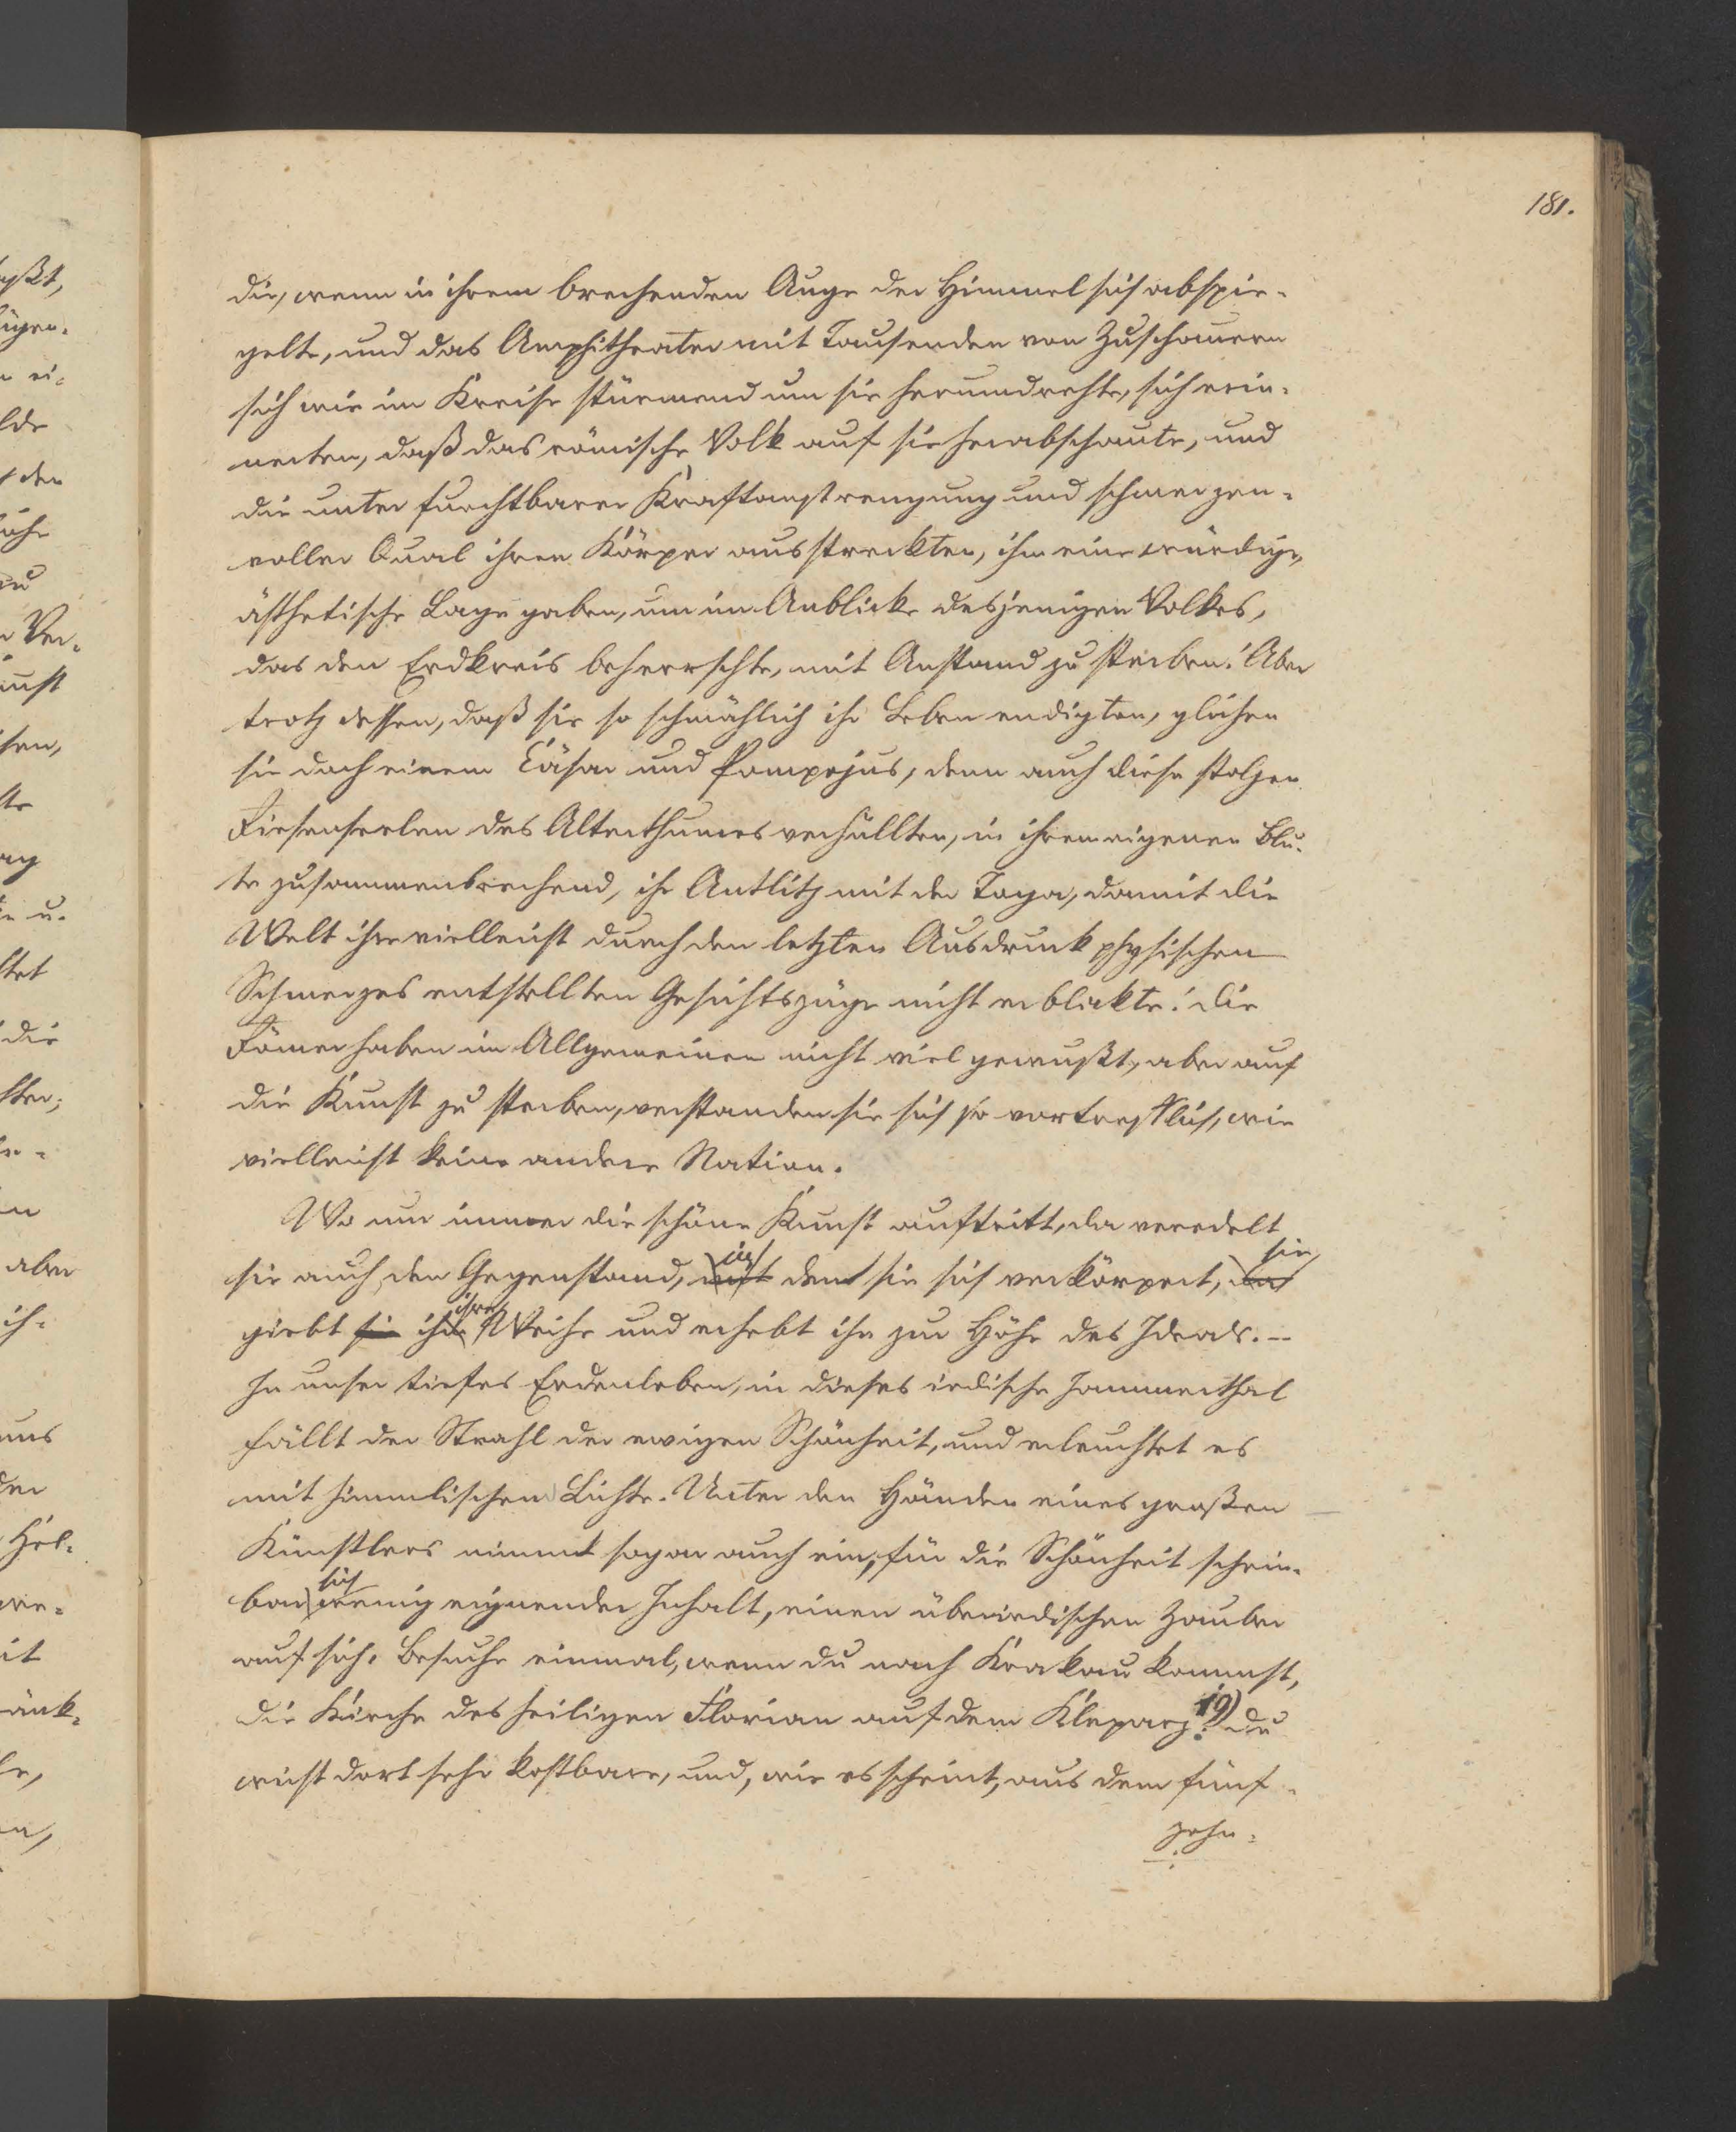 181.
die, wenn in ihrem brechenden Auge der Himmel sich abspie-
gelte, und das Amphitheater mit Tausenden von Zuschauern
sich wie im Kreise stürmend um sie herumdrehte, sich erin-
nerten, daß das römische Volk auf sie herabschaute, und
die unter furchtbarer Kraftanstrengung und schmerzen-
voller Qual ihren Körper ausstreckten, ihm eine würdige,
ästhetische Lage gaben, um im Anblicke desjenigen Volkes,
das den Erdkreis beherrschte, mit Anstand zu sterben! Aber
trotz dessen, daß sie so schmählich ihr Leben endigten, glichen
sie doch einem Cäsar und Pompejus, denn auch diese stolzen
Riesenseelen des Alterthumes verhüllten, in ihrem eigenen Blu-
te zusammenbrechend, ihr Antlitz mit der Toga, damit die
Welt ihre vielleicht durch den letzten Ausdruck physischen
Schmerzes entstellten Gesichtszüge nicht erblickte! Die
Römer haben im Allgemeinen nicht viel gewußt, aber auf
die Kunst zu sterben, verstanden sie sich so vortrefflich, wie
vielleicht keine andere Nation.
Wo nur immer die schöne Kunst auftritt, da veredelt
sie auch den Gegenstand, in dem sie sich verkörpert, sie
giebt sie ihm ihre Weihe und erhebt ihn zur Höhe des Ideals. –
In unser tiefes Erdenleben, in dieses irdische Jammerthal
fällt der Strahl der ewigen Schönheit, und erleuchtet es
mit himmlischem Lichte. Unter den Händen eines großen
Künstlers nimmt sogar auch ein, für die Schönheit schein-
bar sich wenig eignender Inhalt, einen überirdischen Zauber
auf sich. Besuche einmal, wenn du nach Krakau kommst,
die Kirche des heiligen Florian auf dem Kleparz. 19) Du
wirst dort sehr kostbare, und, wie es scheint, aus dem fünf-
zehn-